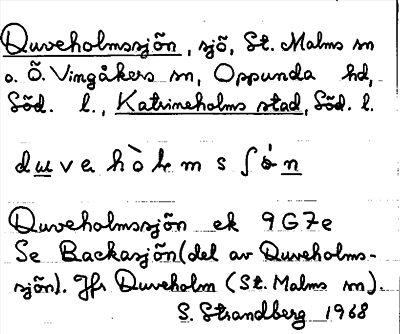 Duveholmssjön, sjö, St. Malms sn
o. Ö. Vingåkers sn, Oppunda hd,
Söd. l., Katrineholms stad, Söd. l.
Duveholmssjön ek 9G7e
Se Backasjön (del av Duveholms-
sjön). Jfr Duveholm (St. Malms sn).
S. Strandberg 1968